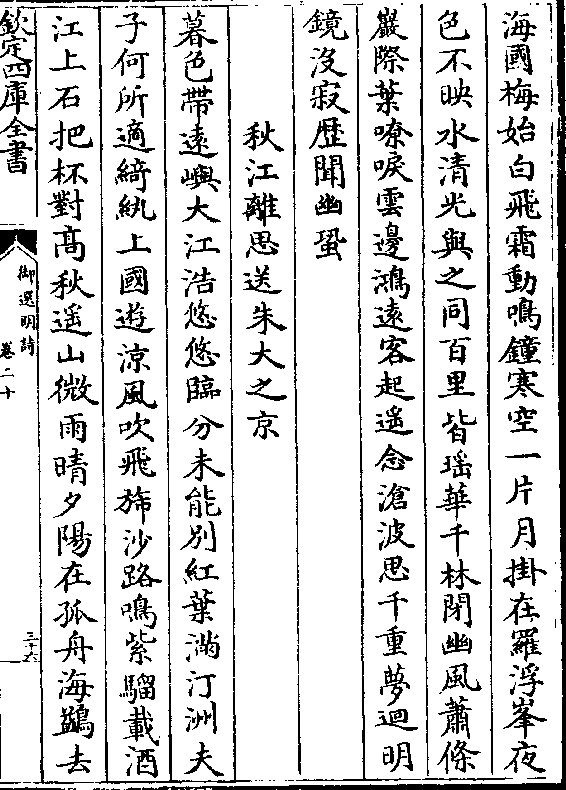 海國梅始白飛霜動鳴鐘寒空一片月掛在羅浮峯夜
色不映水清光與之同百里皆瑶華千林閉幽風蕭條
巖際葉嘹唳雲邊鴻遠客起遥念滄波思千重夢迴明
鏡沒寂歴聞幽蛩
秋江離思送朱大之京
暮色帶遠嶼大江浩悠悠臨分未能別紅葉滿汀洲夫
子何所適綺紈上國遊涼風吹飛斾沙路鳴紫騮載酒
江上石把杯對髙秋遥山微雨晴夕陽在孤舟海鷁去
欽定四庫全書
御選明詩
卷二十
三十六